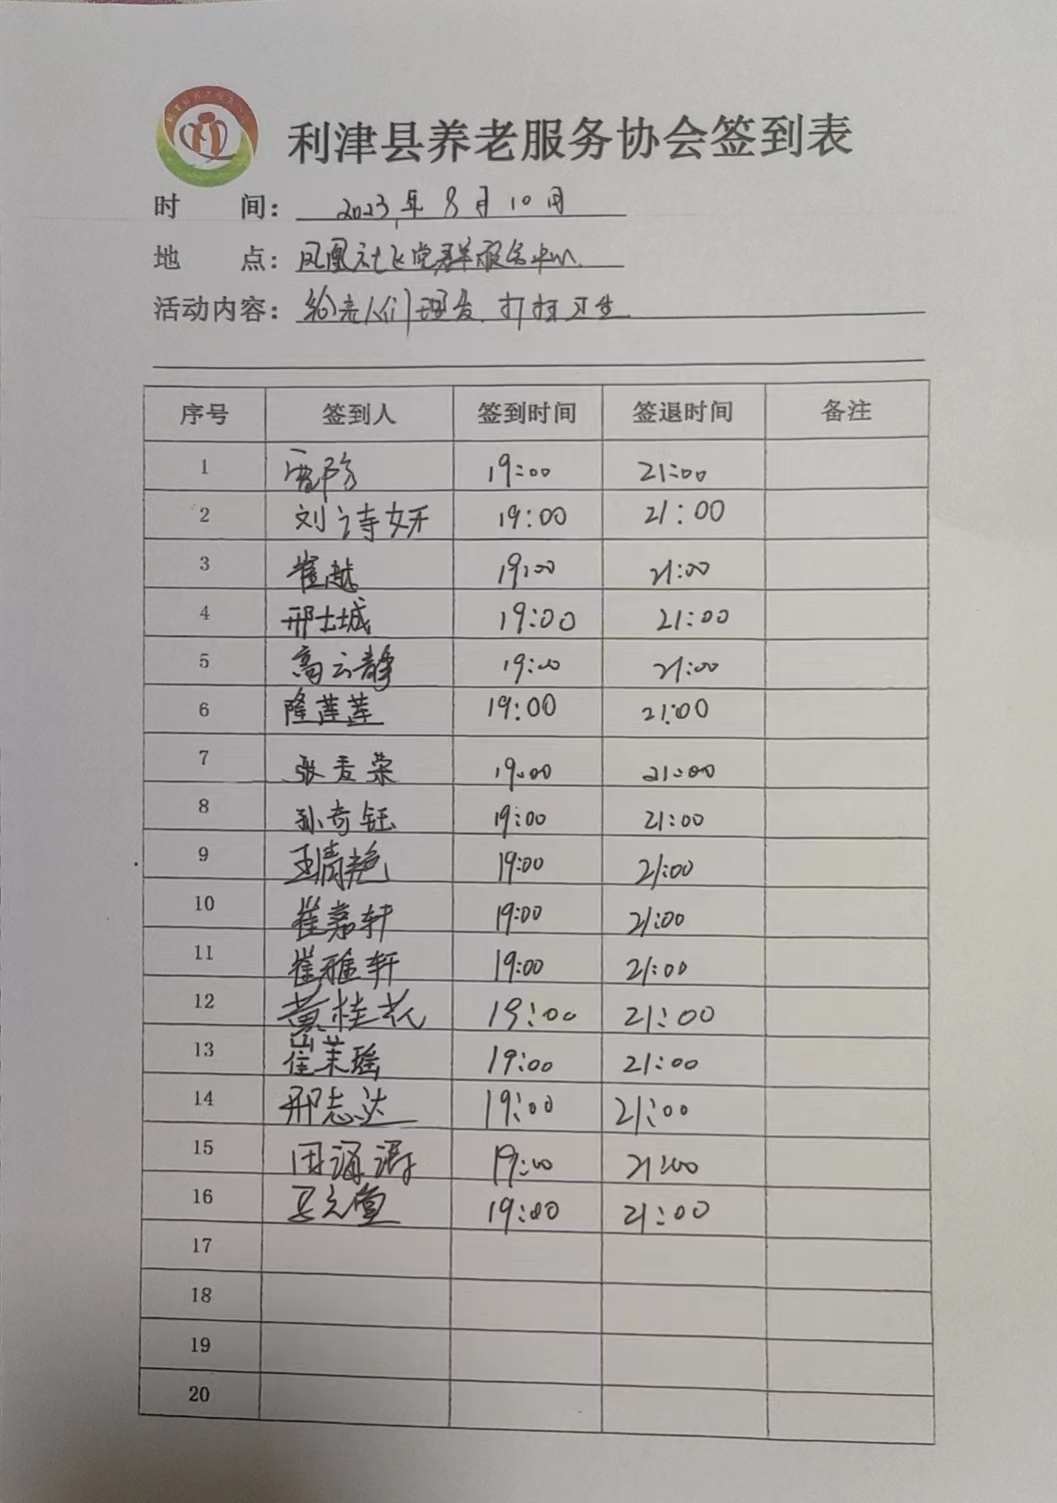 利津县养老服务协会签到表
时 间： 2023年8月10日
地 点： 凤凰社区党群服务中心
活动内容： 给老人们理发、打扫卫生
序号 签到人 签到时间 签退时间 备注
1 19:00 21:00
2 刘诗妍 19:00 21:00
3 崔越 19:00 21:00
4 邢士城 19:00 21:00
5 高云静 19:00 21:00
6 隆莲莲 19:00 21:00
7 张麦荣 19:00 21:00
8 孙奇钰 19:00 21:00
9 王清艳 19:00 21:00
10 崔嘉轩 19:00 21:00
11 崔雅轩 19:00 21:00
12 黄桂花 19:00 21:00
13 崔茉瑶 19:00 21:00
14 邢志达 19:00 21:00
15 19:00 21:00
16 19:00 21:00
17
18
19
20